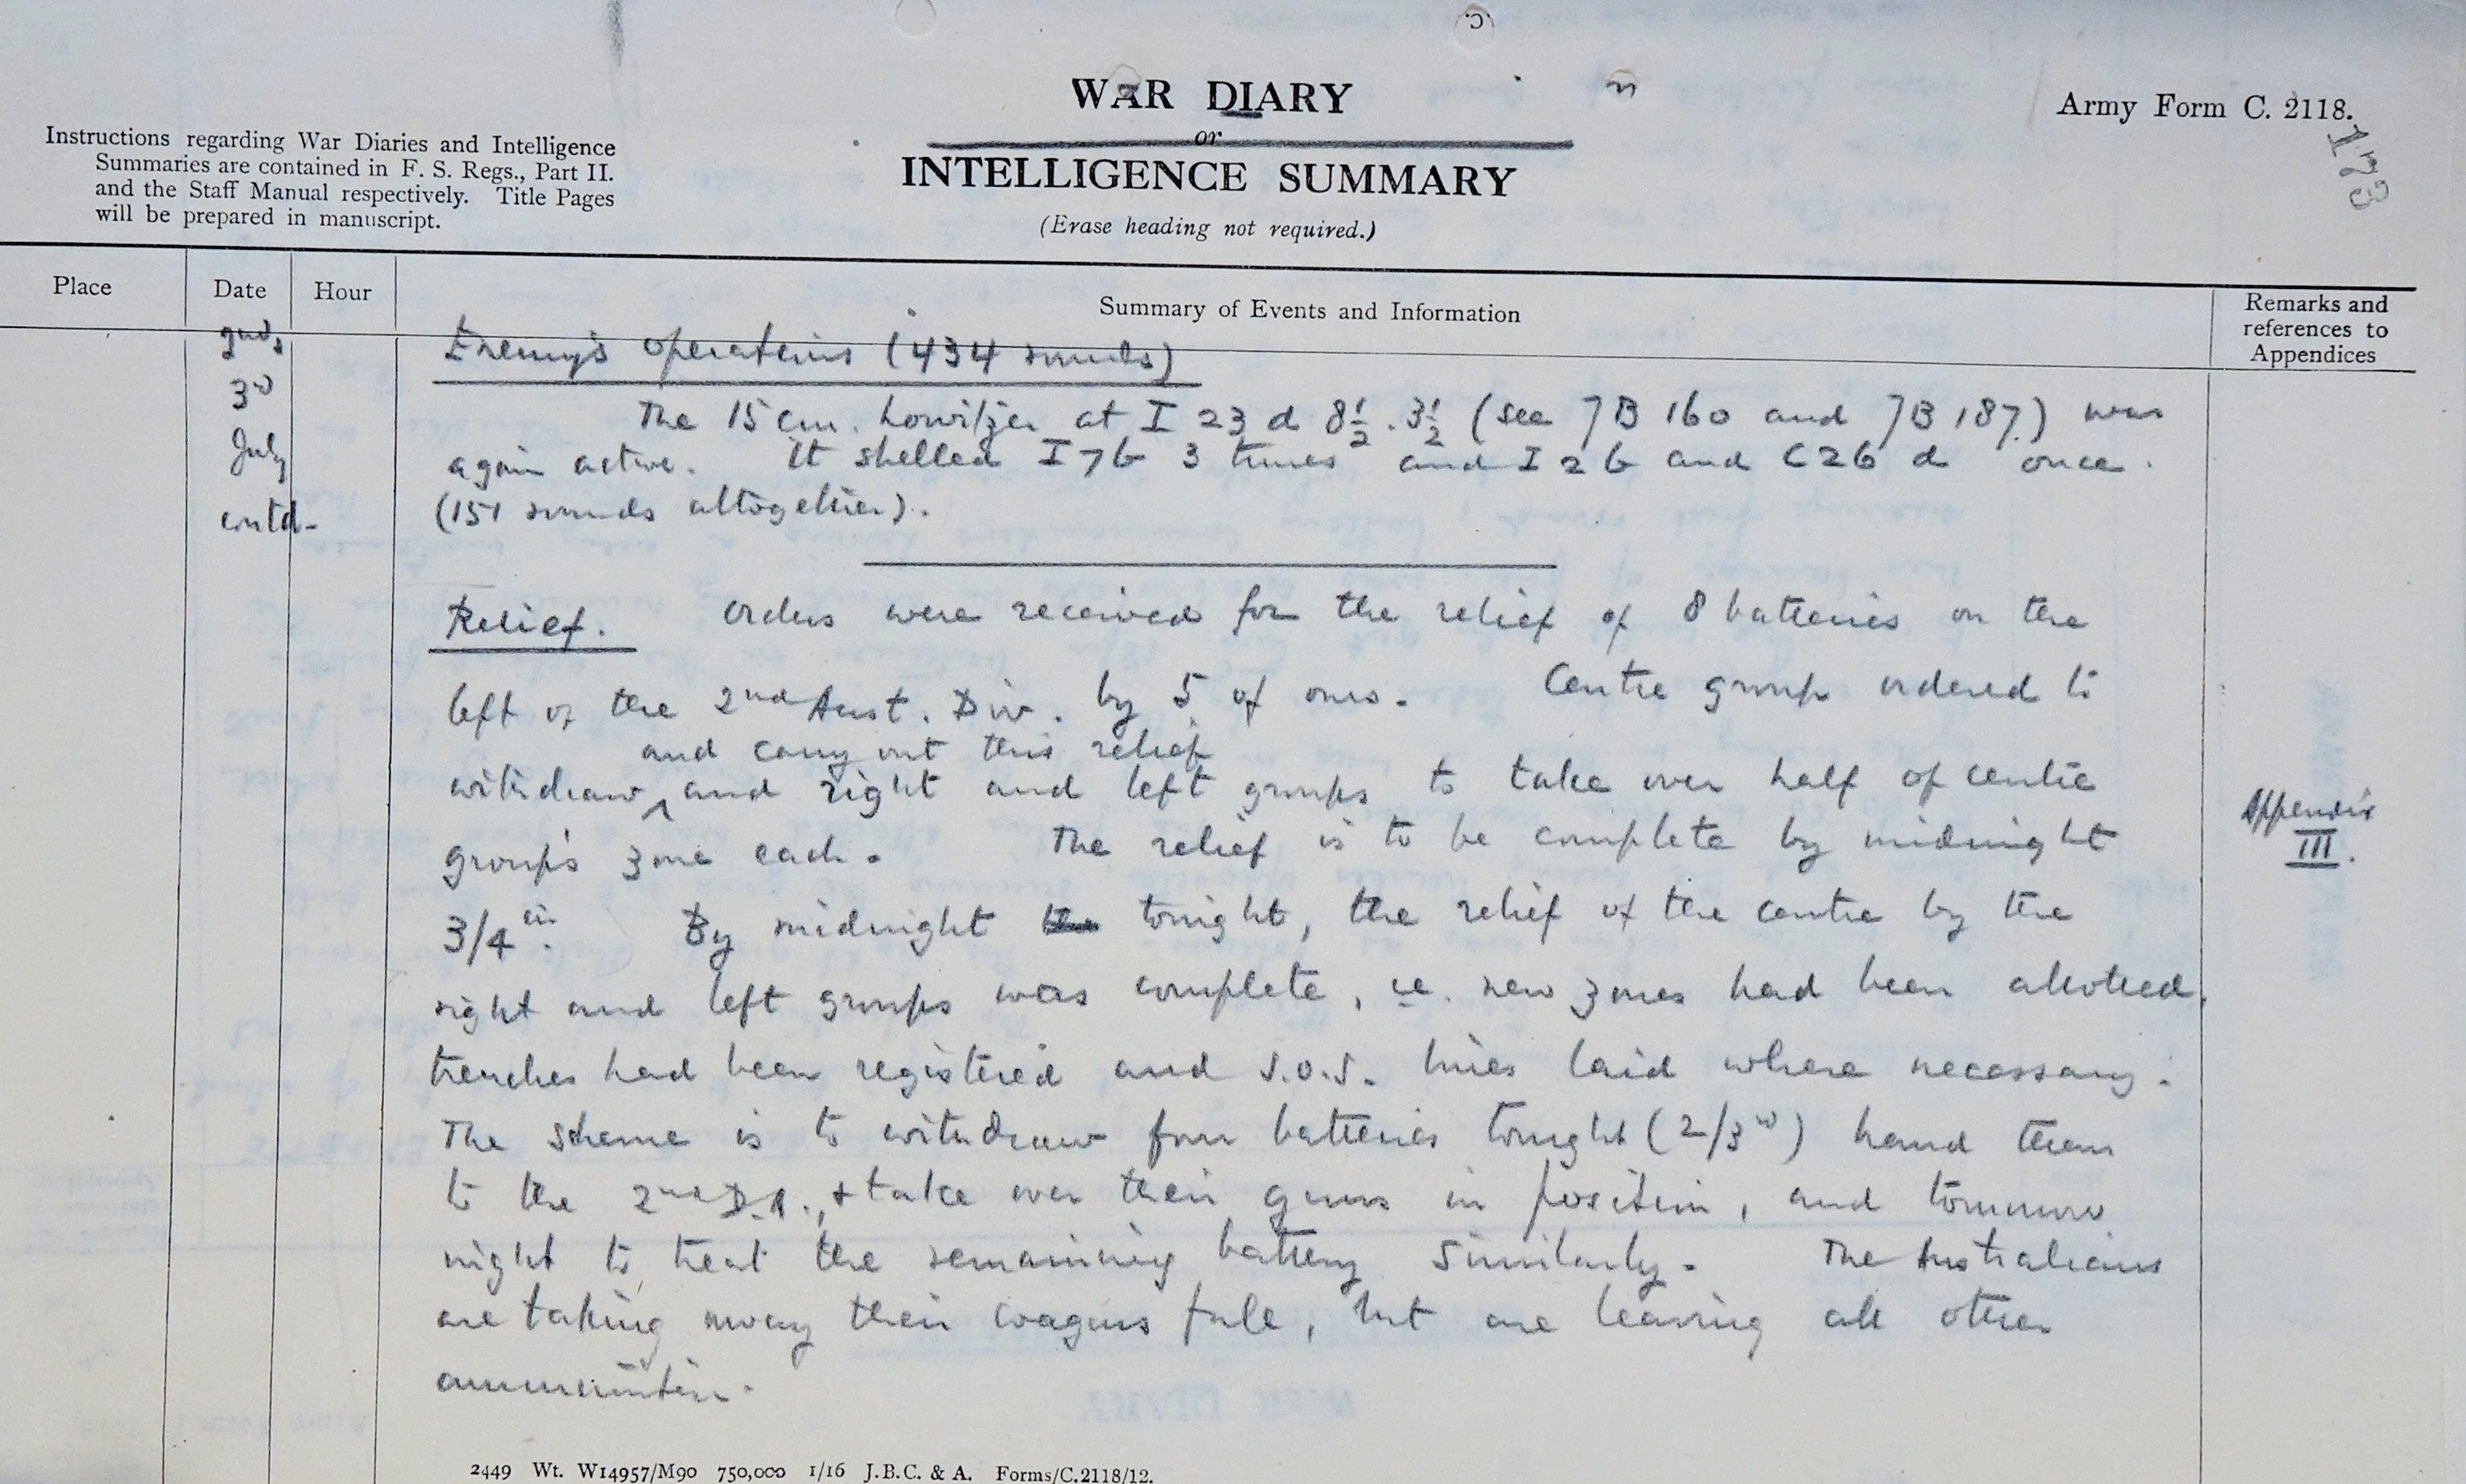 WAR DIARY
or
INTELLIGENCE SUMMARY
(Erase heading not required.)
Army Form C. 2118.
173
Instructions regarding War Diaries and Intelligence
Summaries are contained in F. S. Regs., Part II.
and the Staff Manual respectively. Title Pages
will be prepared in manuscript.
Place
Date
Hour
Summary of Events and Information
Remarks and
references to
Appendices
3rd
July
contd-
Enemy's operations (434 rounds)
The 15 cm. howitzer at I 23 d 8½.3½ (see 7B 160 and 7B 187.) was
again active. It shelled I 7 b 3 times and I 2 b and C 26 d once.
(151 rounds altogether).
Relief. Orders were received for the relief of 8 batteries on the
left of the 2nd Aust. Div. by 5 of ours. Centre group ordered to
and carry out this relief
withdraw ^ and right and left groups to take over half of centre
group's zone each. The relief is to be complete by midnight
3/4th. By midnight tonight, the relief of the centre by the
right and left groups was complete, i.e. new zones had been allotted,
trenches had been registered and S.O.S. lines laid where necessary.
The scheme is to withdraw four batteries tonight (2/3rd) hand them
to the 2nd D.A., & take over their guns in position, and tomorrow
night to treat the remaining battery similarly. The Australians
are taking away their wagons full, but are leaving all other
ammunition.
Appendix
III.
2449 Wt. W14957/M90 750,000 1/16 J.B.C. & A. Forms/C.2118/12.